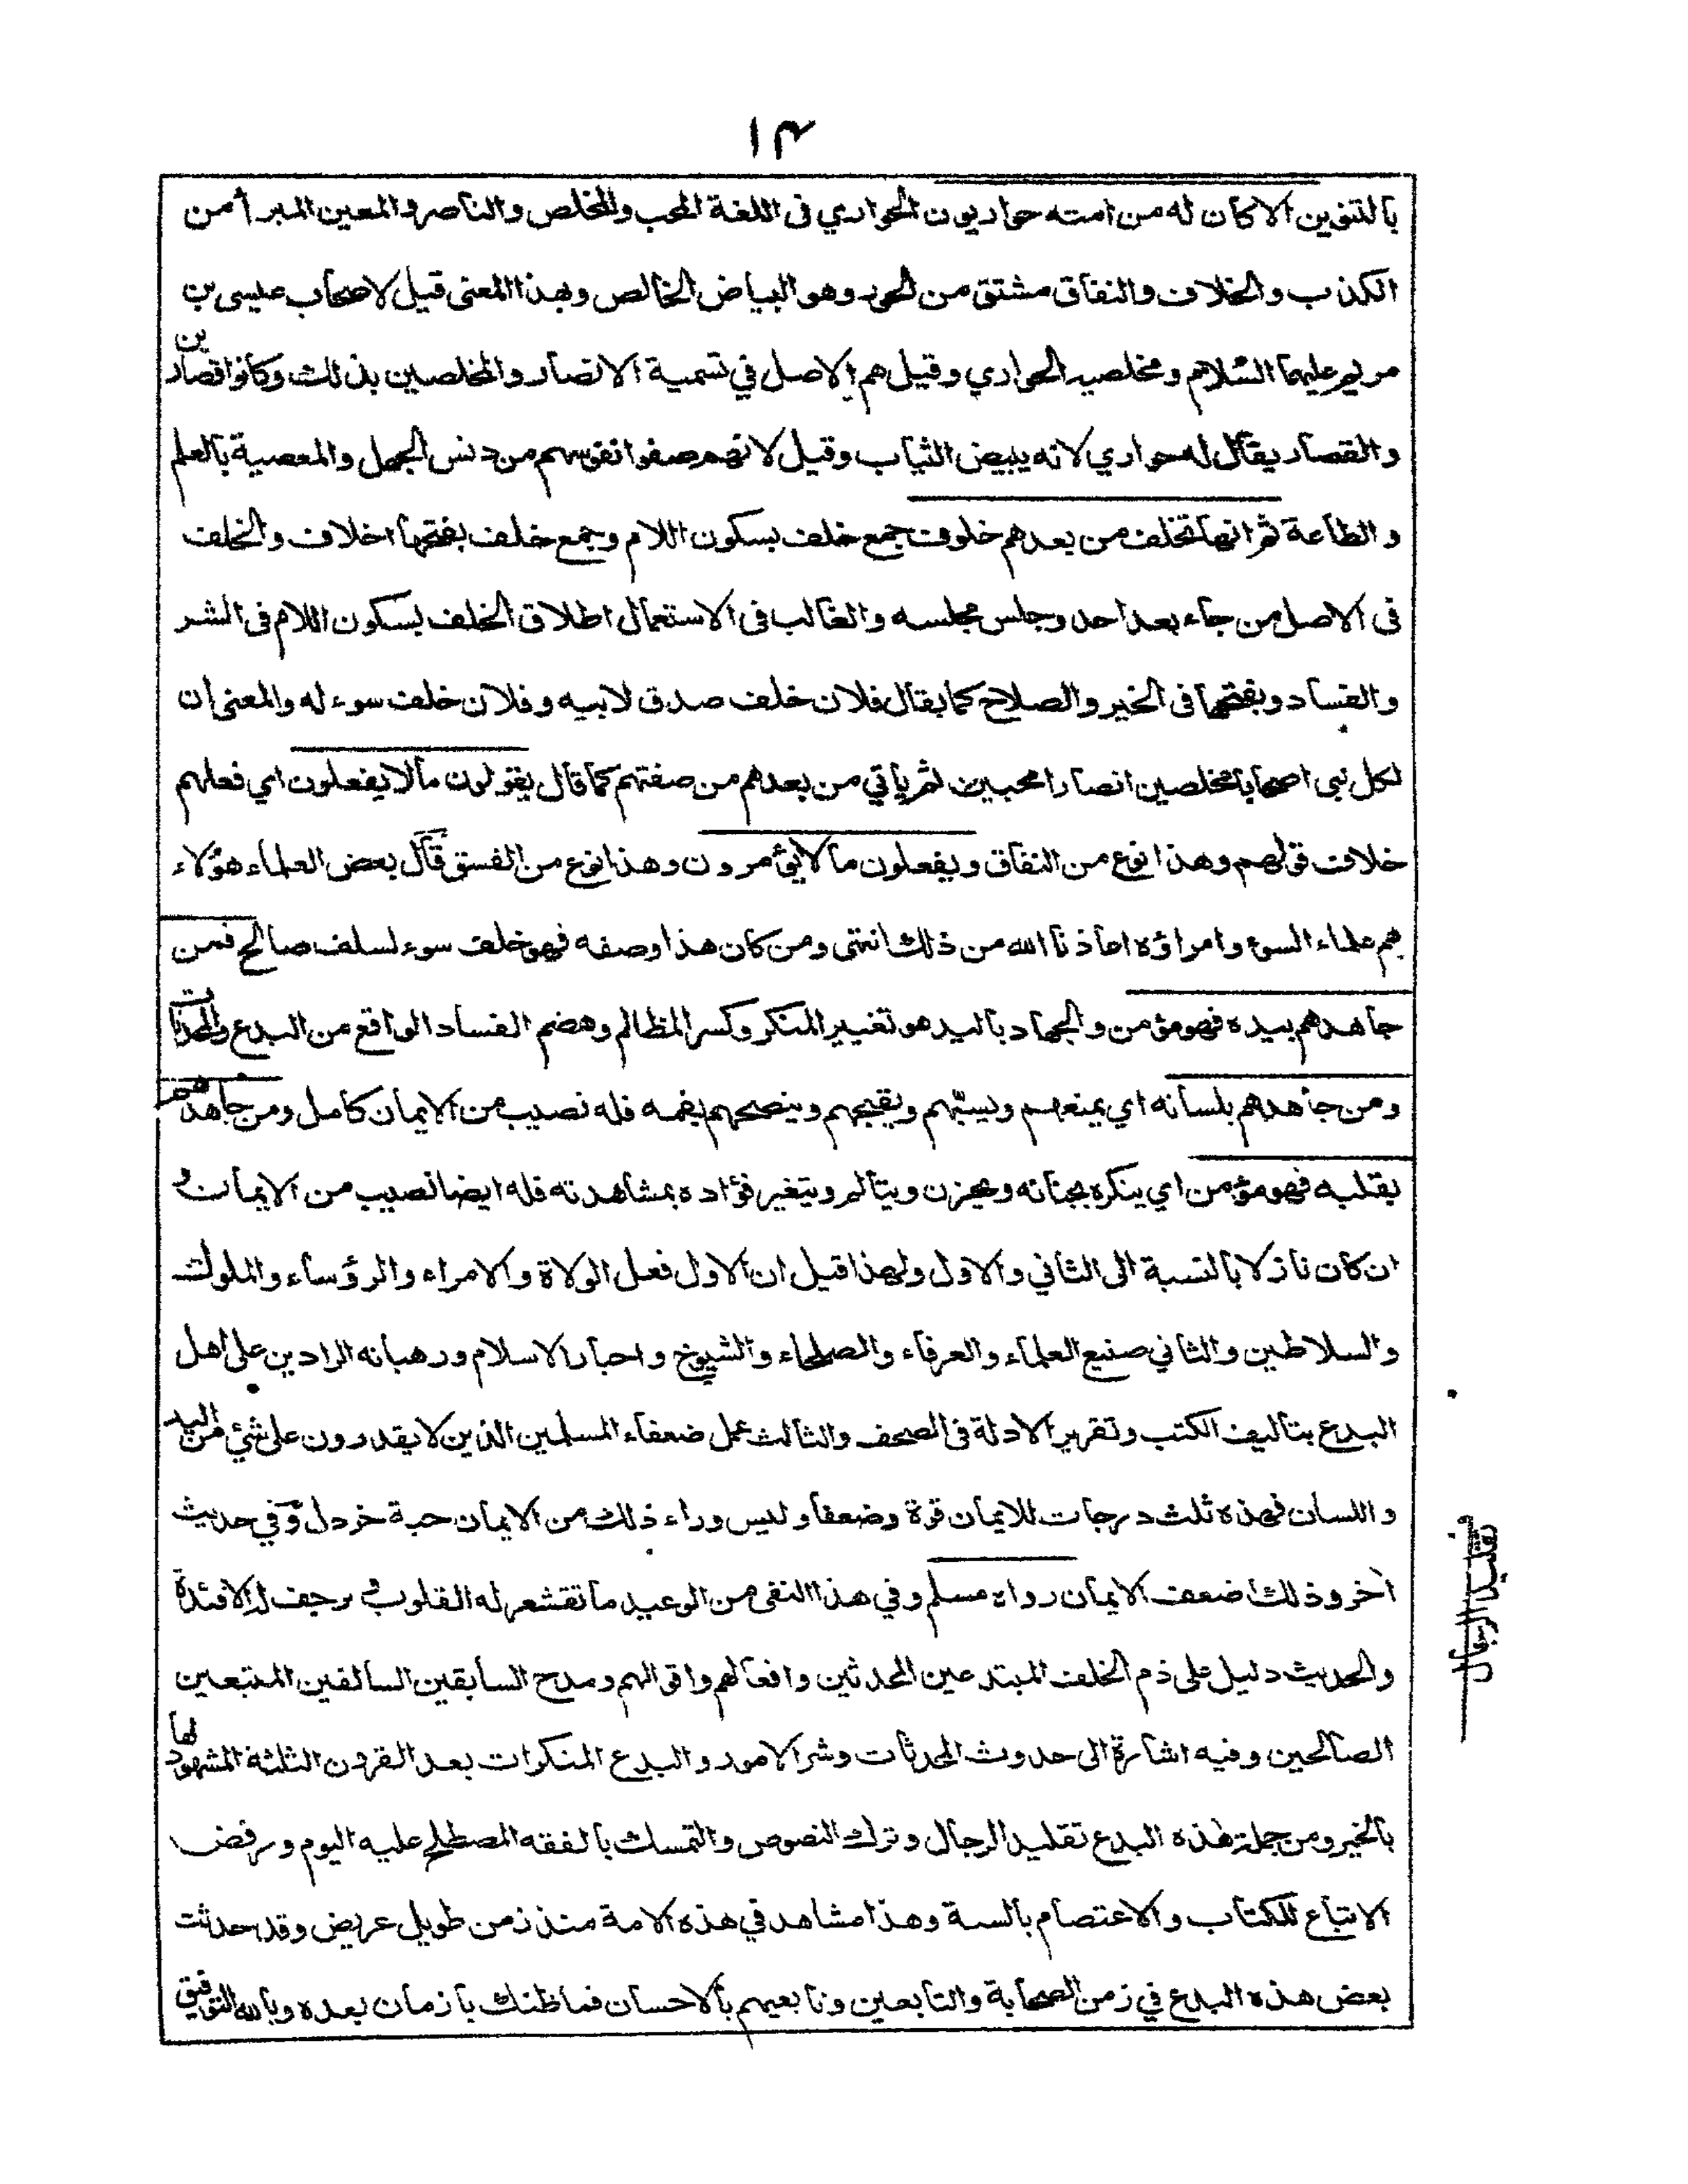 ١٣
بالتنوين الا كان له من امته حواريون الحواري فى اللغة المحب والمخلص والناصر والمعين المبرأ من
الكذب والخلاف والنفاق مشتق من الحور وهو البياض الخالص وبهذا المعنى قيل لاصحاب عيسى بن
مريم عليهما السلام ومخلصيه الحواري وقيل هم الاصل في تسمية الانصار والمخلصين بذلك وكانوا قصارين
والقصار يقال له حواري لانه يبيض الثياب وقيل لانهم صفوا نفوسهم من دنس الجهل والمعصية بالعلم
والطاعة ثم انها تخلف من بعدهم خلوف جمع خلف بسكون اللام وجمع خلف بفتحها اخلاف والخلف
فى الاصل من جاء بعد احد وجلس مجلسه والغالب فى الاستعمال اطلاق الخلف بسكون اللام فى الشر
والفساد وبفتحها فى الخير والصلاح كما يقال فلان خلف صدق لابيه وفلان خلف سوء له والمعنى ان
لكل نبى اصحابا مخلصين انصارا محبين ثم ياتي من بعدهم من صفتهم كما قال يقولون مالا يفعلون اي فعلهم
خلاف قولهم وهذا نوع من النفاق ويفعلون ما لا يؤمرون وهذا نوع من الفسق قال بعض العلماء هؤلاء
هم علماء السوء وامراؤه اعاذنا الله من ذلك انتهى ومن كان هذا وصفه فهو خلف سوء لسلف صالح فمن
جاهدهم بيده فهو مؤمن والجهاد باليد هو تغيير المنكر وكسر المظالم وهضم الفساد الواقع من البدع والمحدثات
ومن جاهدهم بلسانه اي يمنعهم ويسبّهم ويقبحهم وينصحهم بفمه فله نصيب من الايمان كامل ومن جاهدهم
بقلبه فهو مؤمن اي ينكره بجنانه ويحزن ويتألم ويتغير فؤاده بمشاهدته فله ايضا نصيب من الايمان و
ان كان نازلا بالنسبة الى الثاني والاول ولهذا قيل ان الاول فعل الولاة والامراء والرؤساء والملوك
والسلاطين والثاني صنيع العلماء والعرفاء والصلحاء والشيوخ واحبار الاسلام ورهبانه الرادين على اهل
البدع بتأليف الكتب وتقرير الادلة فى الصحف والثالث عمل ضعفاء المسلمين الذين لا يقدرون على شئ من اليد
واللسان فهذه ثلث درجات للايمان قوة وضعفا وليس وراء ذلك من الايمان حبة خردل وفي حديث
آخر وذلك اضعف الايمان رواه مسلم وفي هذا النفى من الوعيد ما تقشعر له القلوب و يرجف له الافئدة
والحديث دليل على ذم الخلف المبتدعين المحدثين وافعالهم واقوالهم ومدح السابقين السالفين المتبعين
الصالحين وفيه اشارة الى حدوث المحدثات وشر الامور والبدع المنكرات بعد القرون الثلثة المشهود لها
بالخير ومن جملة هذه البدع تقليد الرجال وترك النصوص والتمسك بالفقه المصطلح عليه اليوم ورفض
الاتباع للكتاب والاعتصام بالسنة وهذا مشاهد في هذه الامة منذ زمن طويل عريض وقد حدثت
بعض هذه البدع في زمن الصحابة والتابعين وتابعيهم بالاحسان فما ظنك بأزمان بعده وبالله التوفيق
ف تقليد الرجال